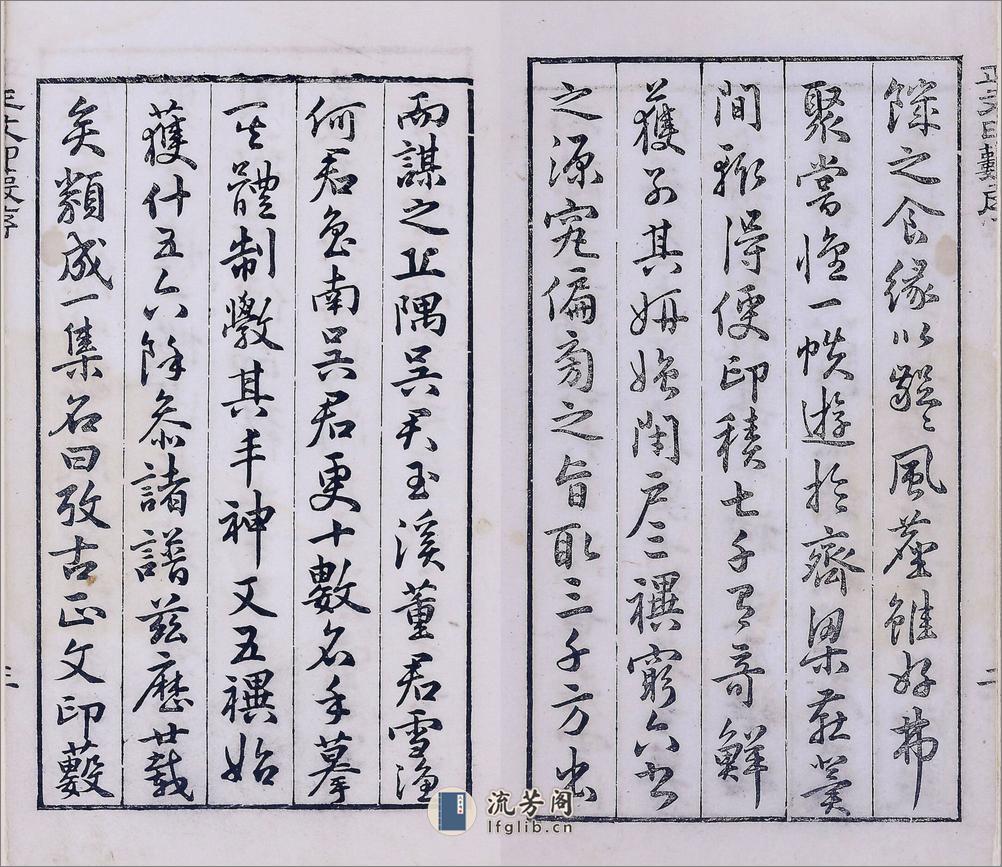 餘之食緣以齷齪風塵雖好弗
聚嘗惟一帙遊於齊梁燕冀
間輒得便印積七千有奇鮮
獲別其妍媸閉戶三禩窮六書
之源究偏旁之旨取三千方出
而謀之止隅吳君玉溪董君雪漁
何君魯南呂君更十數名手摹
一其體制斆其丰神又五禩始
獲什五六餘參諸譜茲歷廿載
矣類成一集名曰攷古正文印藪
正文印藪序
二
正文印藪序
三
流芳阁
lfglib.cn